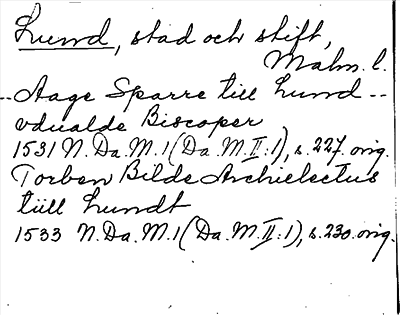 Lund, stad och stift,
Malm. l.
-- Aage Sparre till Lund --
vdualde Biscoper
1531 N. Da. M. 1 (Da. M. II: 1), s. 227. orig.
Torben Bilde Archielectus
tüll Lundt
1533 N. Da. M. 1 (Da. M. II: 1), s. 230. orig.